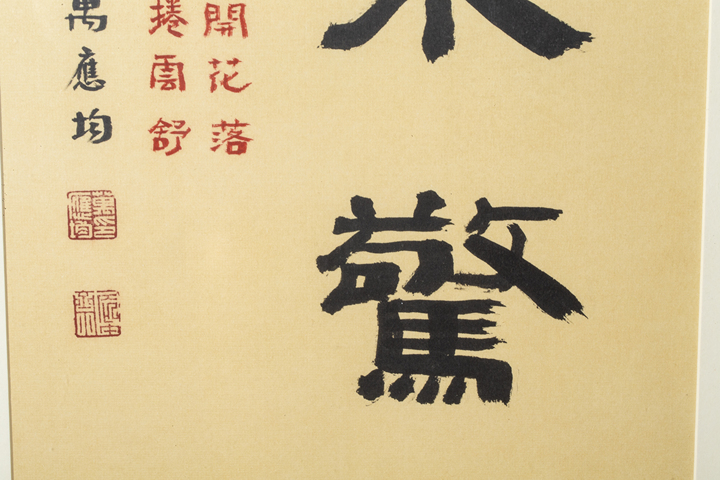 不驚
開花落
捲雲舒
萬應均